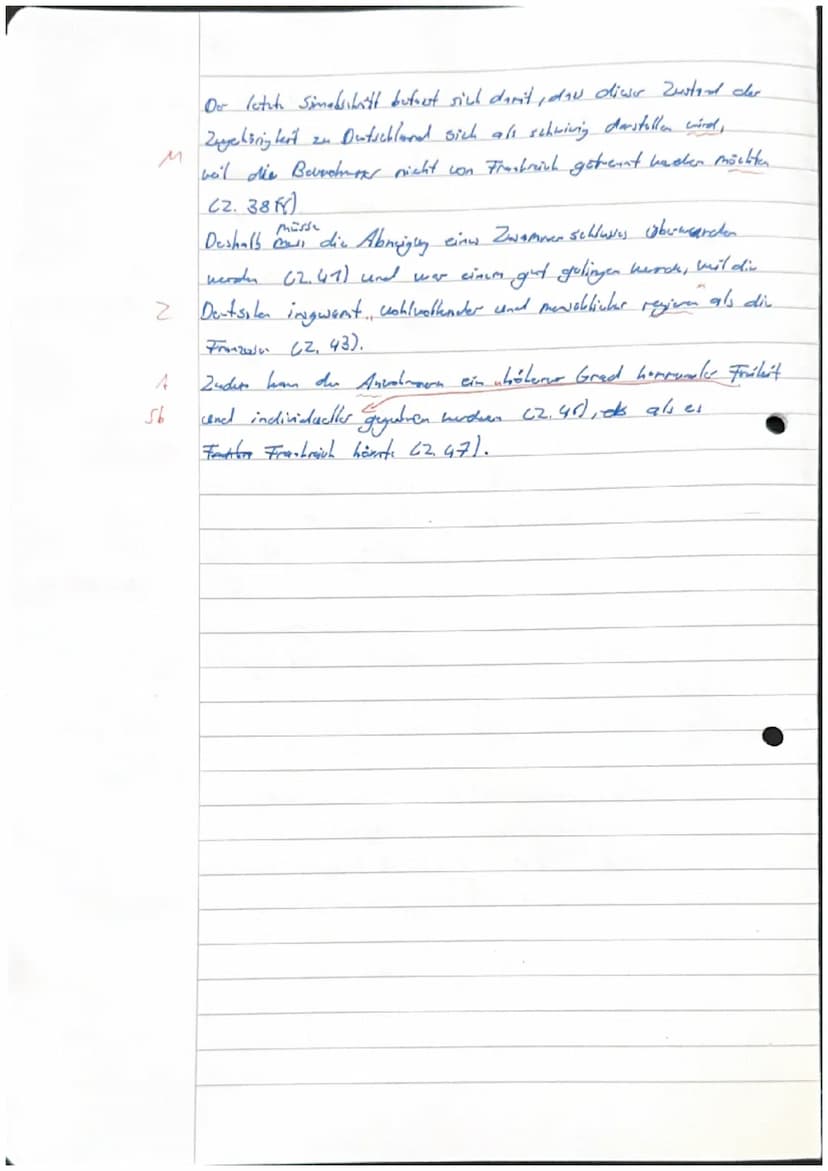 Der letzte Sinnabschnitt befasst sich damit, dass dieser Zustand der
Zugehörigkeit zu Deutschland sich als schwierig darstellen wird,
M weil die Bewohner nicht von Frankreich getrennt werden möchten
(Z. 38ff)
müsse
Deshalb muss die Abneigung eines Zusammenschlusses überwunden
werden (Z. 41) und was einem gut gelingen werde, weil die
Z Deutschen insgesamt, wohlwollender und menschlicher regieren als die
Franzosen (Z. 43).
A Zudem kann den Anwohnern ein höherer Grad kommunaler Freiheit
Sb und individueller gegeben werden (Z. 45), als es
Frankreich könnte (Z. 47).